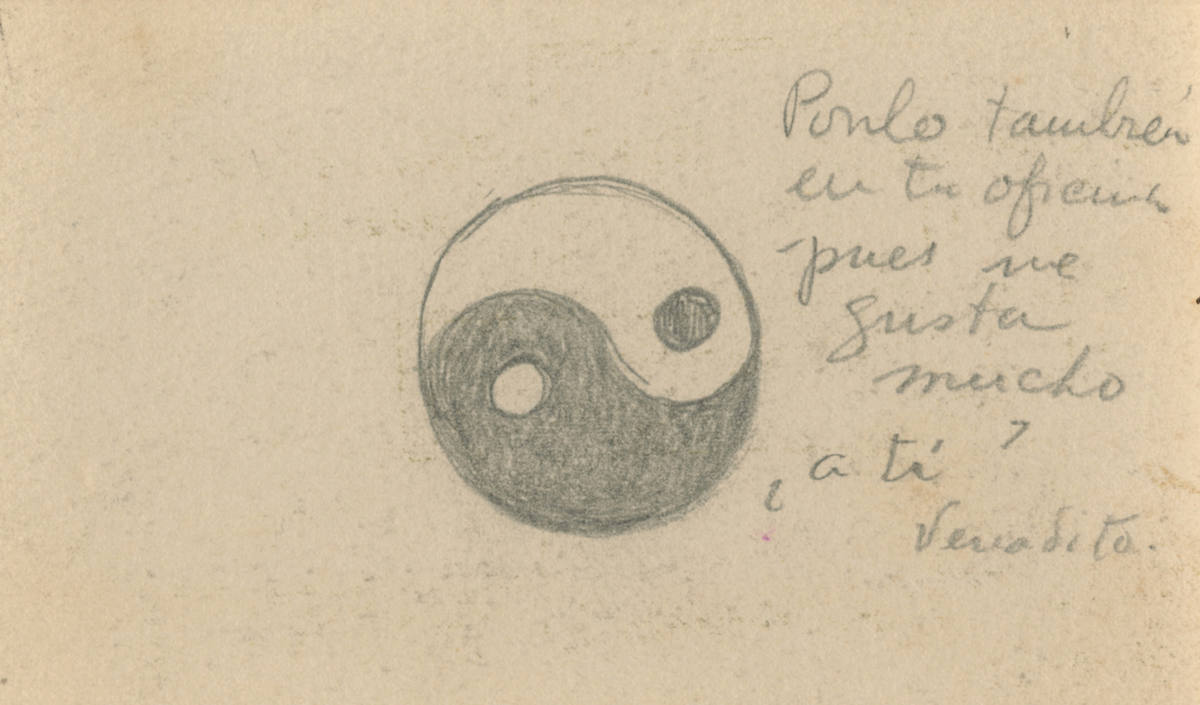 Ponlo también
en tu oficina
pues me
gusta
mucho
¿a tí?
Venadito.